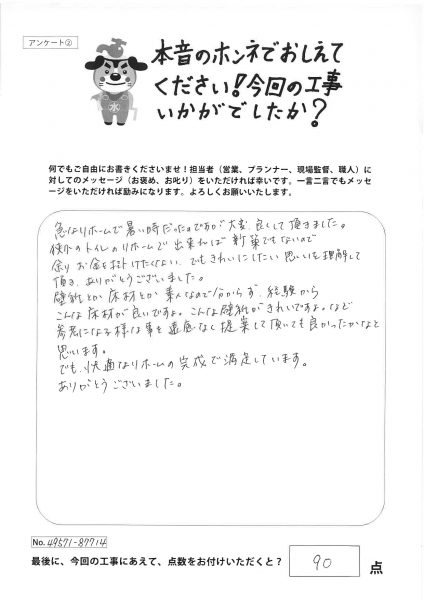 アンケート②
本音のホンネでおしえて
ください!今回の工事
いかがでしたか?
水
何でもご自由にお書きくださいませ!担当者(営業、プランナー、現場監督、職人)に
対してのメッセージ(お褒め、お叱り)をいただければ幸いです。一言二言でもメッセ
ージをいただければ励みになります。よろしくお願いいたします。
急なリホームで暑い時だったのですが大変良くして頂きました。
狭いのトイレのリホームで出来れば新築でもないので
余りお金を掛けたくない、でもきれいにしたい思いを理解して
頂き、ありがとうございました。
壁紙とか床材とか素人なので分からず、経験から
こんな床材が良いですよ。こんな壁紙がきれいですよ。など
参考になる様な事を遠慮なく提案して頂いても良かったかなと
思います。
でも、快適なリホームの完成で満足しています。
ありがとうございました。
No. 49571-87714
最後に、今回の工事にあえて、点数をお付けいただくと? 90 点